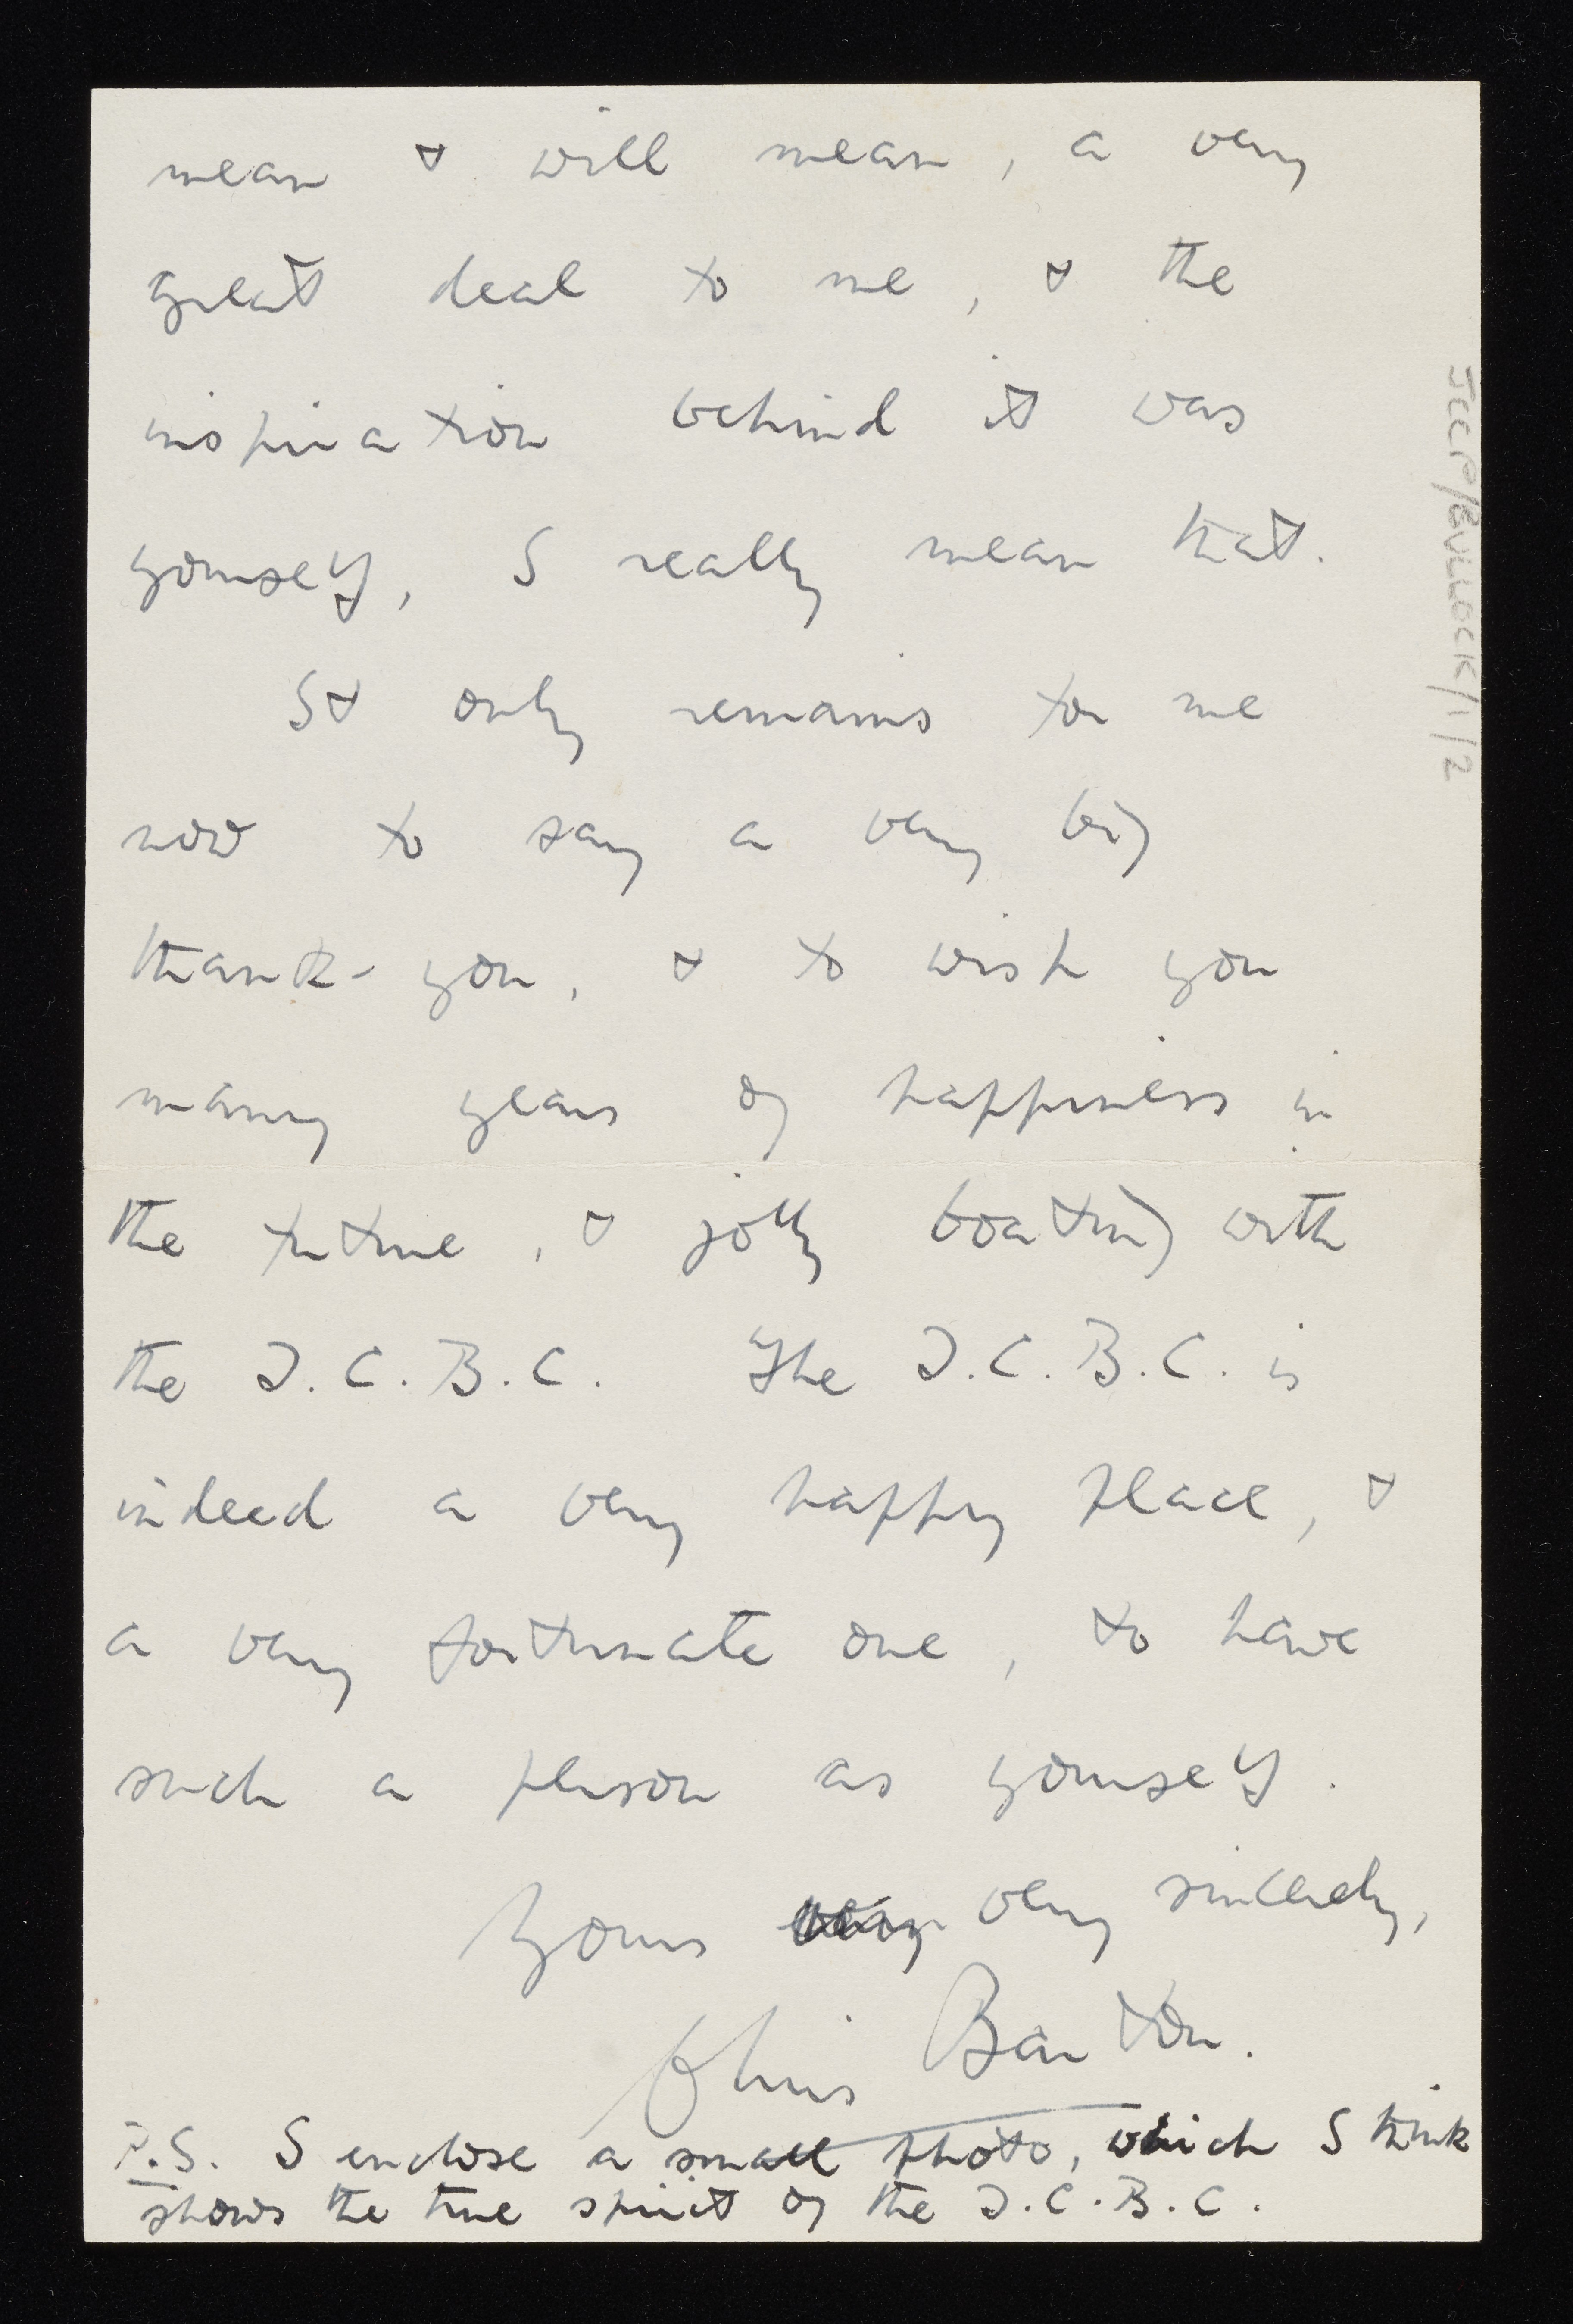 mean & will mean, a very
great deal to me, & the
inspiration behind it was
yourself, I really mean that.
It only remains for me
now to say a very big
thank-you, & to wish you
many years of happiness in
the future, & jolly boating with
the J.C.B.C. The J.C.B.C. is
indeed a very happy place, &
a very fortunate one, to have
such a person as yourself.
Yours very very sincerely,
Chris Barton.
P.S. I enclose a small photo, which I think
shows the true spirit of the J.C.B.C.
JCCP/BULLOCK/1/2